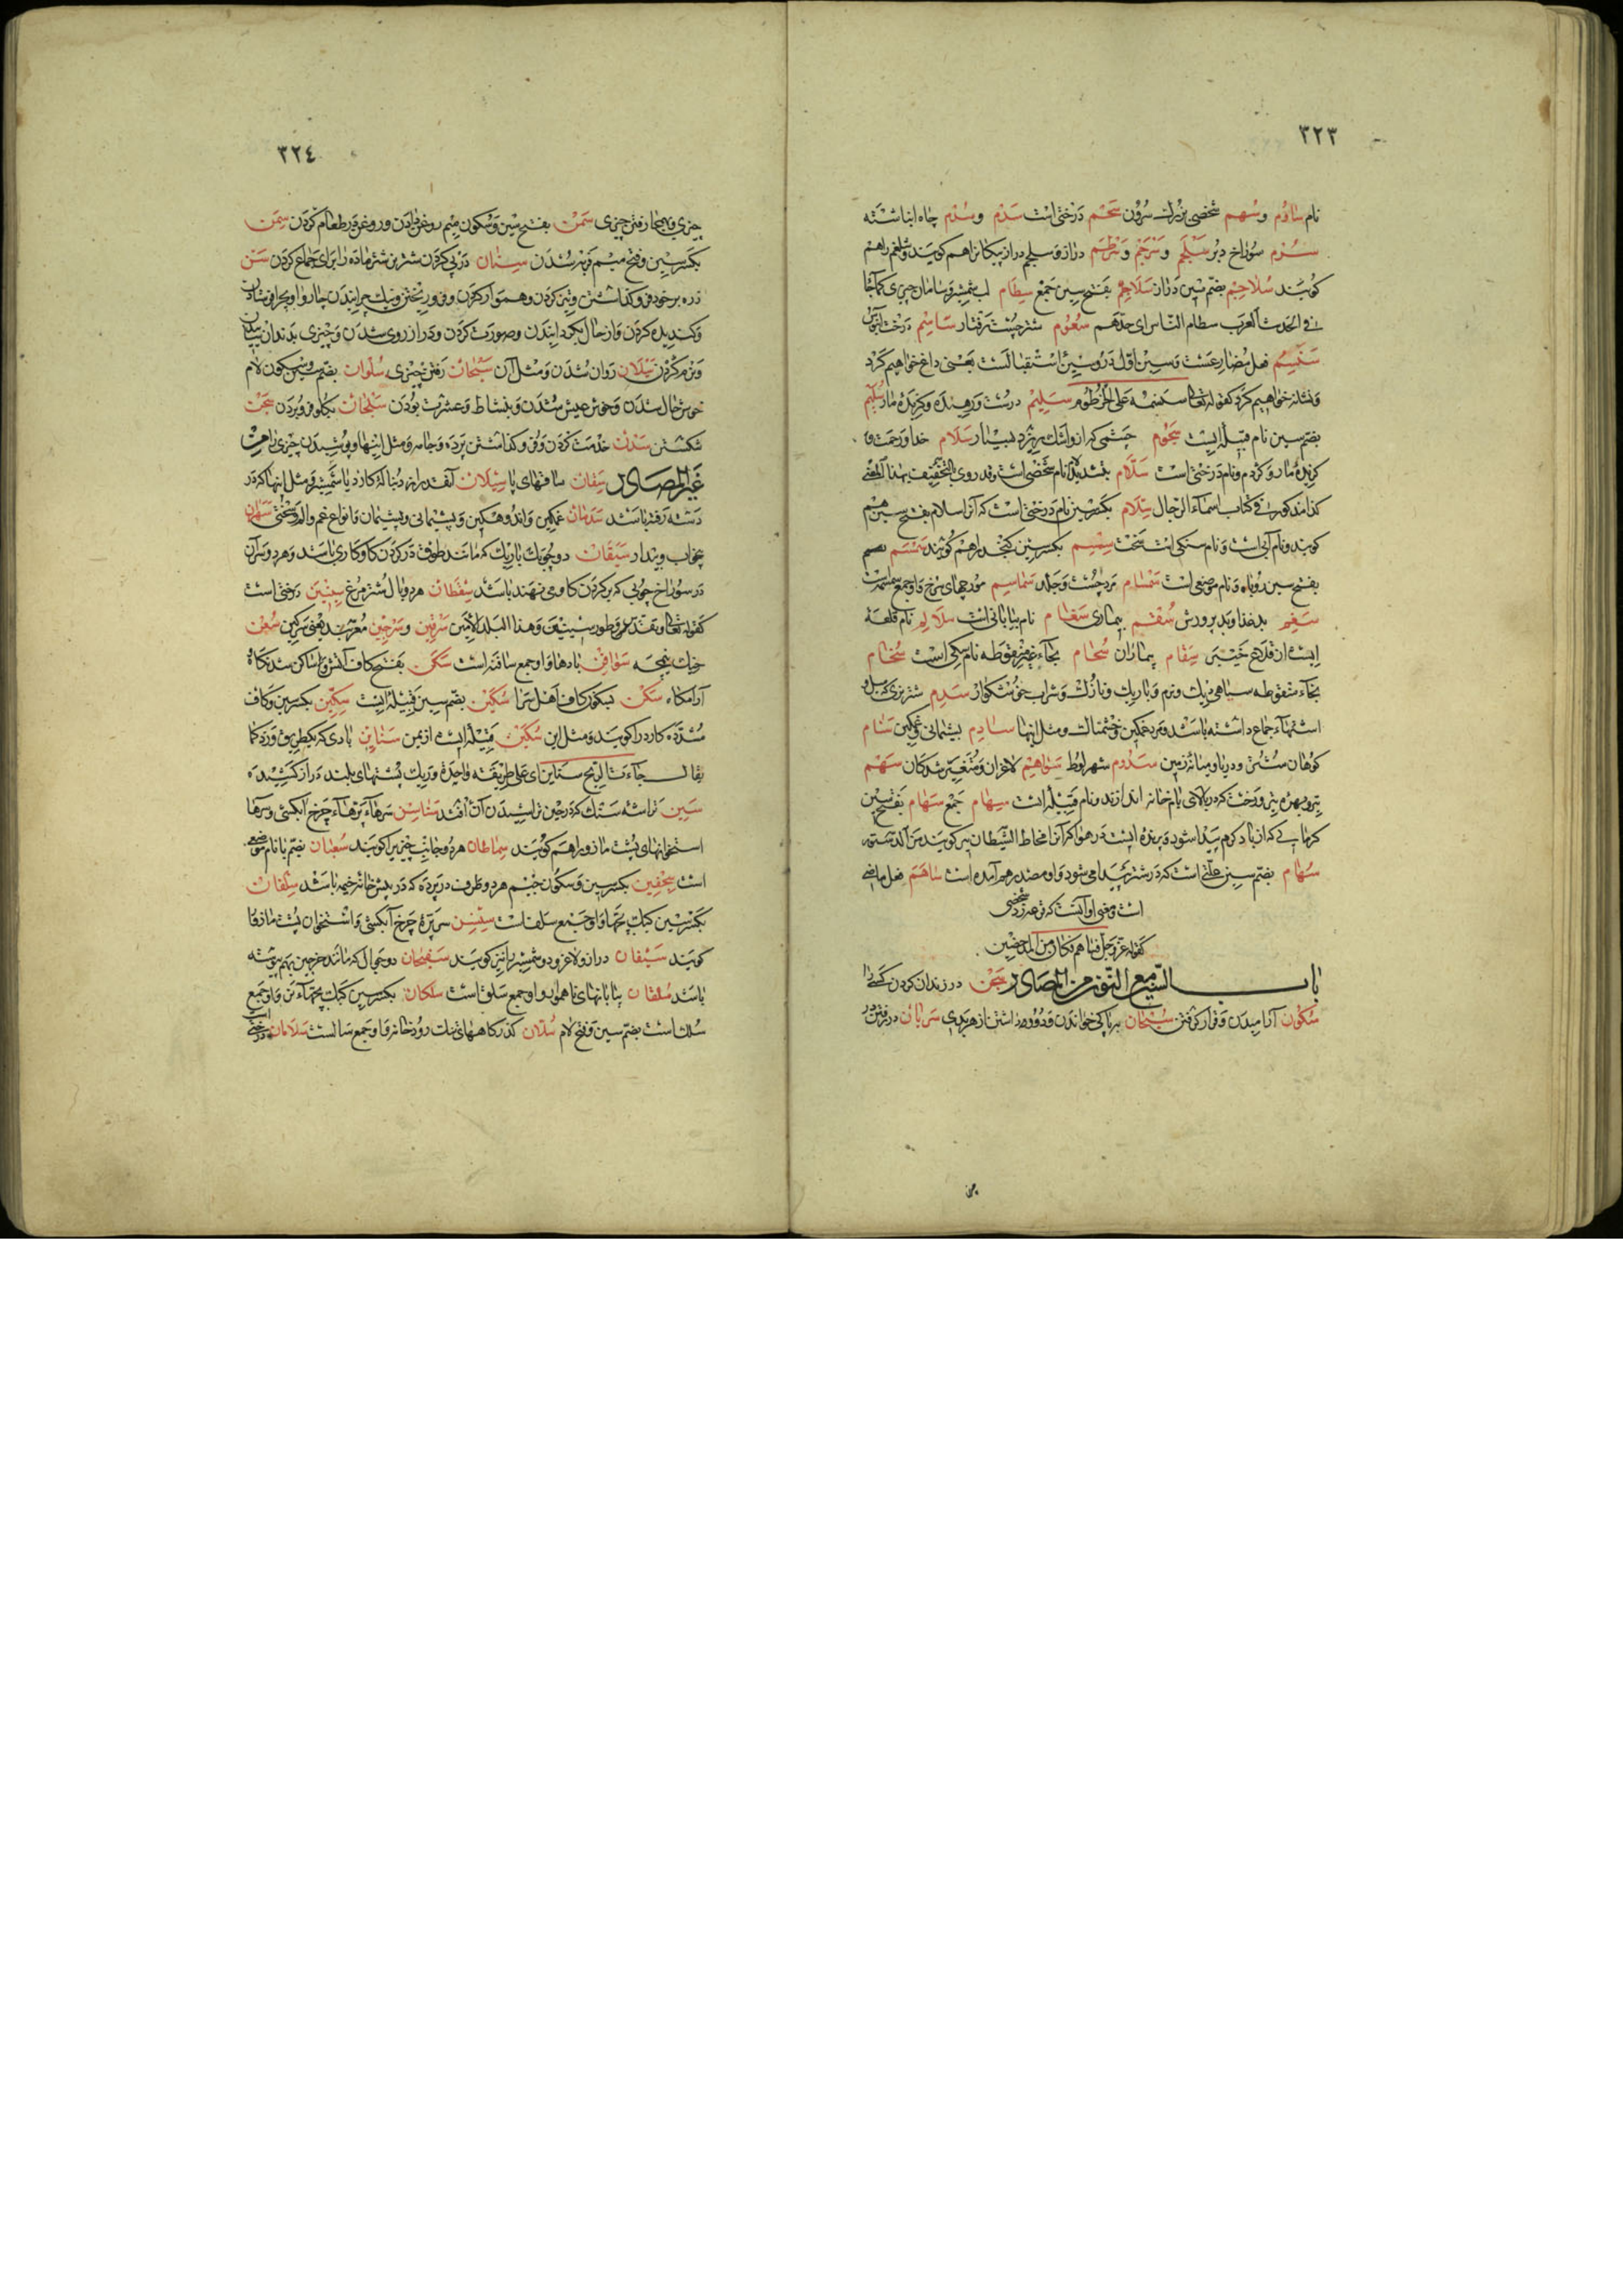 ٣٢٣
نام ساؤم وسهم شخصی بزرك سرون سحم درختی است سدم وسدم چاه انباشته
سرم سوراخ دبر سیلم وسرجم وسرطم دراز وسیلم دراز پیکانرا هم کویند وشلغم را هم
کویند سلاجیم بضم سین دراز سلاجم بفتح سین جمع سطام لب شمشیر وسامان چیزی کما جاء
فی الحدیث العرب سطام الناس ای حدهم سعوم شتر چست رفتار ساسم درخت آبنوس
سنسم فعل مضارعست وسین اول درو سین استقبالست یعنی داغ خواهیم کرد
ونشانه خواهیم کرد کقوله تعالی سنسمه علی الخرطوم سلیم درست ورهنده وکزیده مار سلیم
بضم سین نام قبیله ایست سجوم چشمی که ازو اشك ریزد بسیار سلام خدا ورحمت و
کزیدهٔ مار وکژدم ونام درختی است سلام بتشدید لام نام شخصی است وقد روی بالتخفیف بهذا المعنی
کذا مذکور فی کتاب اسماء الرجال سلام بکسر سین نام درختی است که آنرا سلام بفتح سین هم
کویند ونام آبی است ونام سنکی است سخت سمسم بکسر سین کنجد را هم کویند سمسم
بفتح سین روباه ونام موضعی است سمسام مرد چست وجلد سماسم مورچهای سرخ واو جمع سمسمه است
سغم بد غذا وبد پرورش سقم بیماری سغام نام بیابانی است سلالم نام قلعهٔ
ایست از قلاع خیبر سقام بیماران سحام بحاء غیر منقوطه نام سکی است سخام
بخاء منقوطه سیاهی دیك ونرم وتاریك ونازك وشراب خوشکوار سدم شتر نری که میل و
اشتهاء جماع داشته باشد ومرد غمکین خشمناك ومثل اینها سادم پشیمانی وغمکین سنام
کوهان شتر ودریا ومیانهٔ زمین سدوم شهر لوط سواهم لاغران ومتغیر شدکان سهم
تیر وبهره وتیر درخت که در بالای بام خانه اندازند ونام قبیله است سهام جمع سهام بفتح سین
کرمایی که از باد کرم پیدا شود وپرندهٔ ایست در هوا که آنرا مخاط الشیطان نیز کویند من الدستور
سهام بضم سین علتی است که در شتر پیدا می شود واو مصدر هم آمده است ساهم فعل ماضی
است ومعنی او آنست که قرعه زد شخصی
کقوله عز وجل فساهم فکان من المدحضین
باب السین مع النون من المصادر سجن در زندان کردن کسی را
سکون آرامیدن وقرار کرفتن سبحان بپاکی خواندن ودور داشتن از هر بدی سریان در رفتن در
٣٢٤
چیزی وبهمجا رفتن چیزی سمن بفتح سین وسکون میم روغن دادن وروغن در طعام کردن سمن
بکسر سین وفتح میم فربه شدن سنان در پی کردن شتر نر شتر ماده را برای جماع کردن سن
زره بر خود فرو کذاشتن وتیز کردن وهموار کردن وفرو ریختن ونیك چرانیدن چاروا وبچرا فرستادن
وکندیده کردن واز حال بگردانیدن وصورت کردن ودراز روی شدن وچیزی بدندان
ونرم کردن سیلان روان شدن ومثل آن سبحان رفتن چیزی سلوان بضم سین وسکون لام
خوش حال شدن وخوش عیش شدن وبنشاط وعشرت بودن سلجان بکلو فرو بردن سحن
شکستن سدن خدمت کردن وفرو کذاشتن پرده وجامه ومثل اینها وپوشیدن چیزی را من
غیر المصادر سیقان ساقهای پا سیلان آنقدر از دنبالهٔ کارد یا شمشیر ومثل اینها که در
دسته رفته باشد سدمان غمکین واندوهکین وپشیمانی وپشیمان وانواع غم والم وسختی سهران
بیخواب وبیدار سیقان دو چوبك باریك که مانند طوق در کردن کاو کاری باشد وهر دو سر آن
در سوراخ چوبی که بر کردن کاو می نهند باشد سقطان هر دو بال شتر مرغ سینین درختی است
کقوله تعالی وتقدس وطور سینین وهذا البلد الامین سرقین وسرجین معربند یعنی سرکین سفن
سوافن بادها واو جمع سافنه است سکن بفتح کاف آتش وساکن شدنکاه
آرامکاه سکن بسکون کاف اهل سرا سکین بضم سین قبیله ایست سکین بکسر سین وکاف
مشدده کارد را کویند ومثل این سکین قبیله ایست از یمن سناین بادی که بیك طریق وزد کما
یقال جاءت الریح سناین ای علی طریقة واحدة وریك پشتهای بلند دراز کشیده
سنین تراشهٔ سنك که در حین تراشیدن آن افتد سناسن سرهاء پرهاء چرخ آبکش وسرها
استخوانهای پشت مازو را هم کویند سماطان هر دو جانب چیزیرا کویند سعنان بضم با نام موضعی
است سجفین بکسر سین وسکون جیم هر دو طرف در پرده که در پیش خانه خیمه باشد سلقان
بکسر سین کبك بچها واو جمع سلف است سنسن سر پرهٔ چرخ آبکش واستخوان پشت مازو را
کویند سیفان دراز ولاغر ودو شمشیر را نیز کویند سفیحان دو جوال که مانند خرجین بهم پیوسته
باشد سلقان بیابانهای ناهموار واو جمع سلق است سلکان بکسر سین کبك بچهاء نر واو جمع
سلك است بضم سین وفتح لام سلان کذرکاههای تنك رودخانه را واو جمع سالست سلامان درختی است